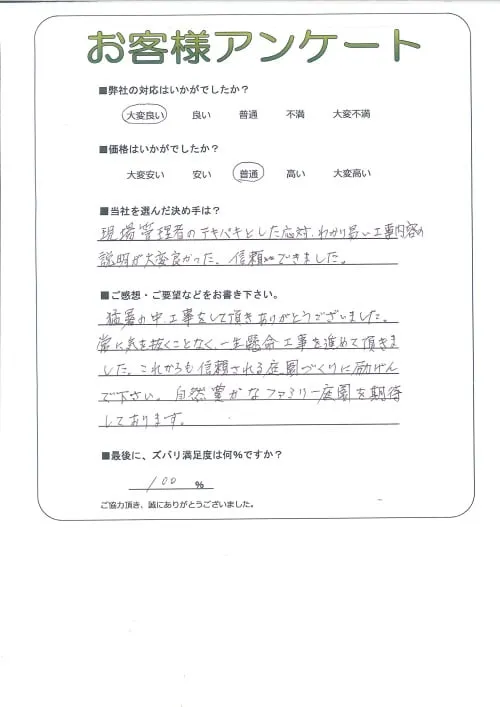 お客様アンケート
■弊社の対応はいかがでしたか？
大変良い 良い 普通 不満 大変不満
■価格はいかがでしたか？
大変安い 安い 普通 高い 大変高い
■当社を選んだ決め手は？
現場管理者のテキパキとした応対、わかり易い工事内容の
説明が大変良かった。信頼できました。
■ご感想・ご要望などをお書き下さい。
猛暑の中、工事をして頂きありがとうございました。
常に気を抜くことなく、一生懸命工事を進めて頂きま
した。これからも信頼される庭園づくりに励げん
で下さい。自然豊かなファミリー庭園を期待
しております。
■最後に、ズバリ満足度は何%ですか？
100 %
ご協力頂き、誠にありがとうございました。